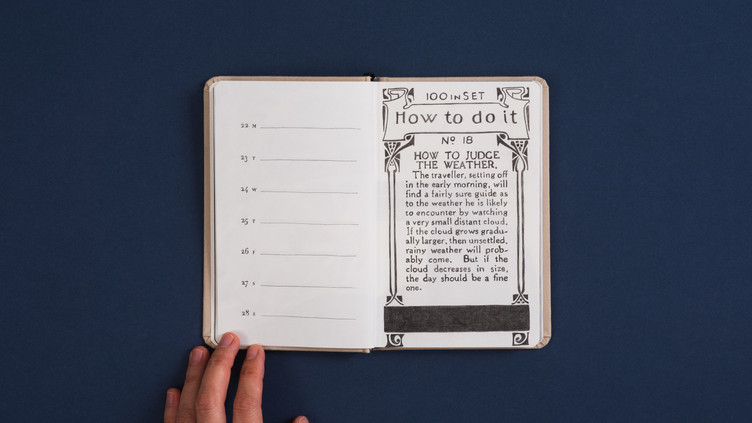 22 M
23 T
24 W
25 T
26 F
27 S
28 S
100 IN SET
How to do it
No 18
HOW TO JUDGE
THE WEATHER.
The traveller, setting off
in the early morning, will
find a fairly sure guide as
to the weather he is likely
to encounter by watching
a very small distant cloud.
If the cloud grows gradu-
ally larger, then unsettled,
rainy weather will prob-
ably come. But if the
cloud decreases in size,
the day should be a fine
one.